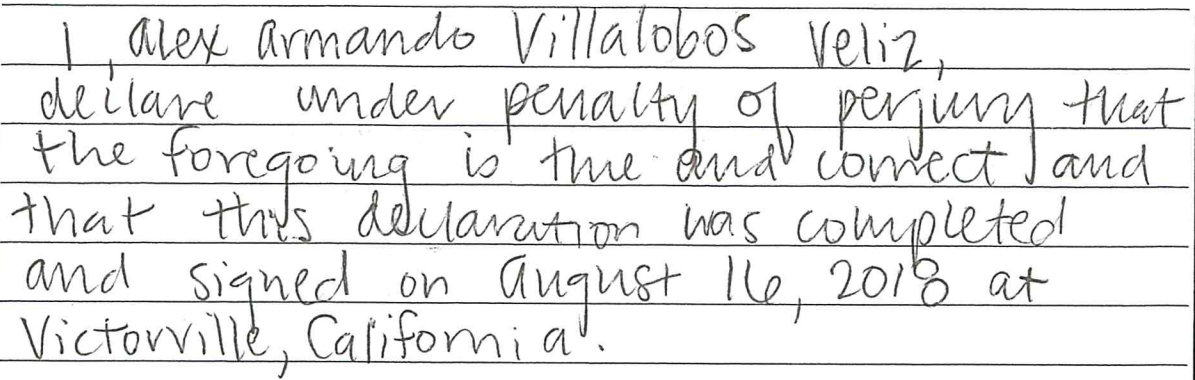 I, Alex Armando Villalobos Veliz,
declare under penalty of perjury that
the foregoing is true and correct and
that this declaration was completed
and signed on August 16, 2018 at
Victorville, California.